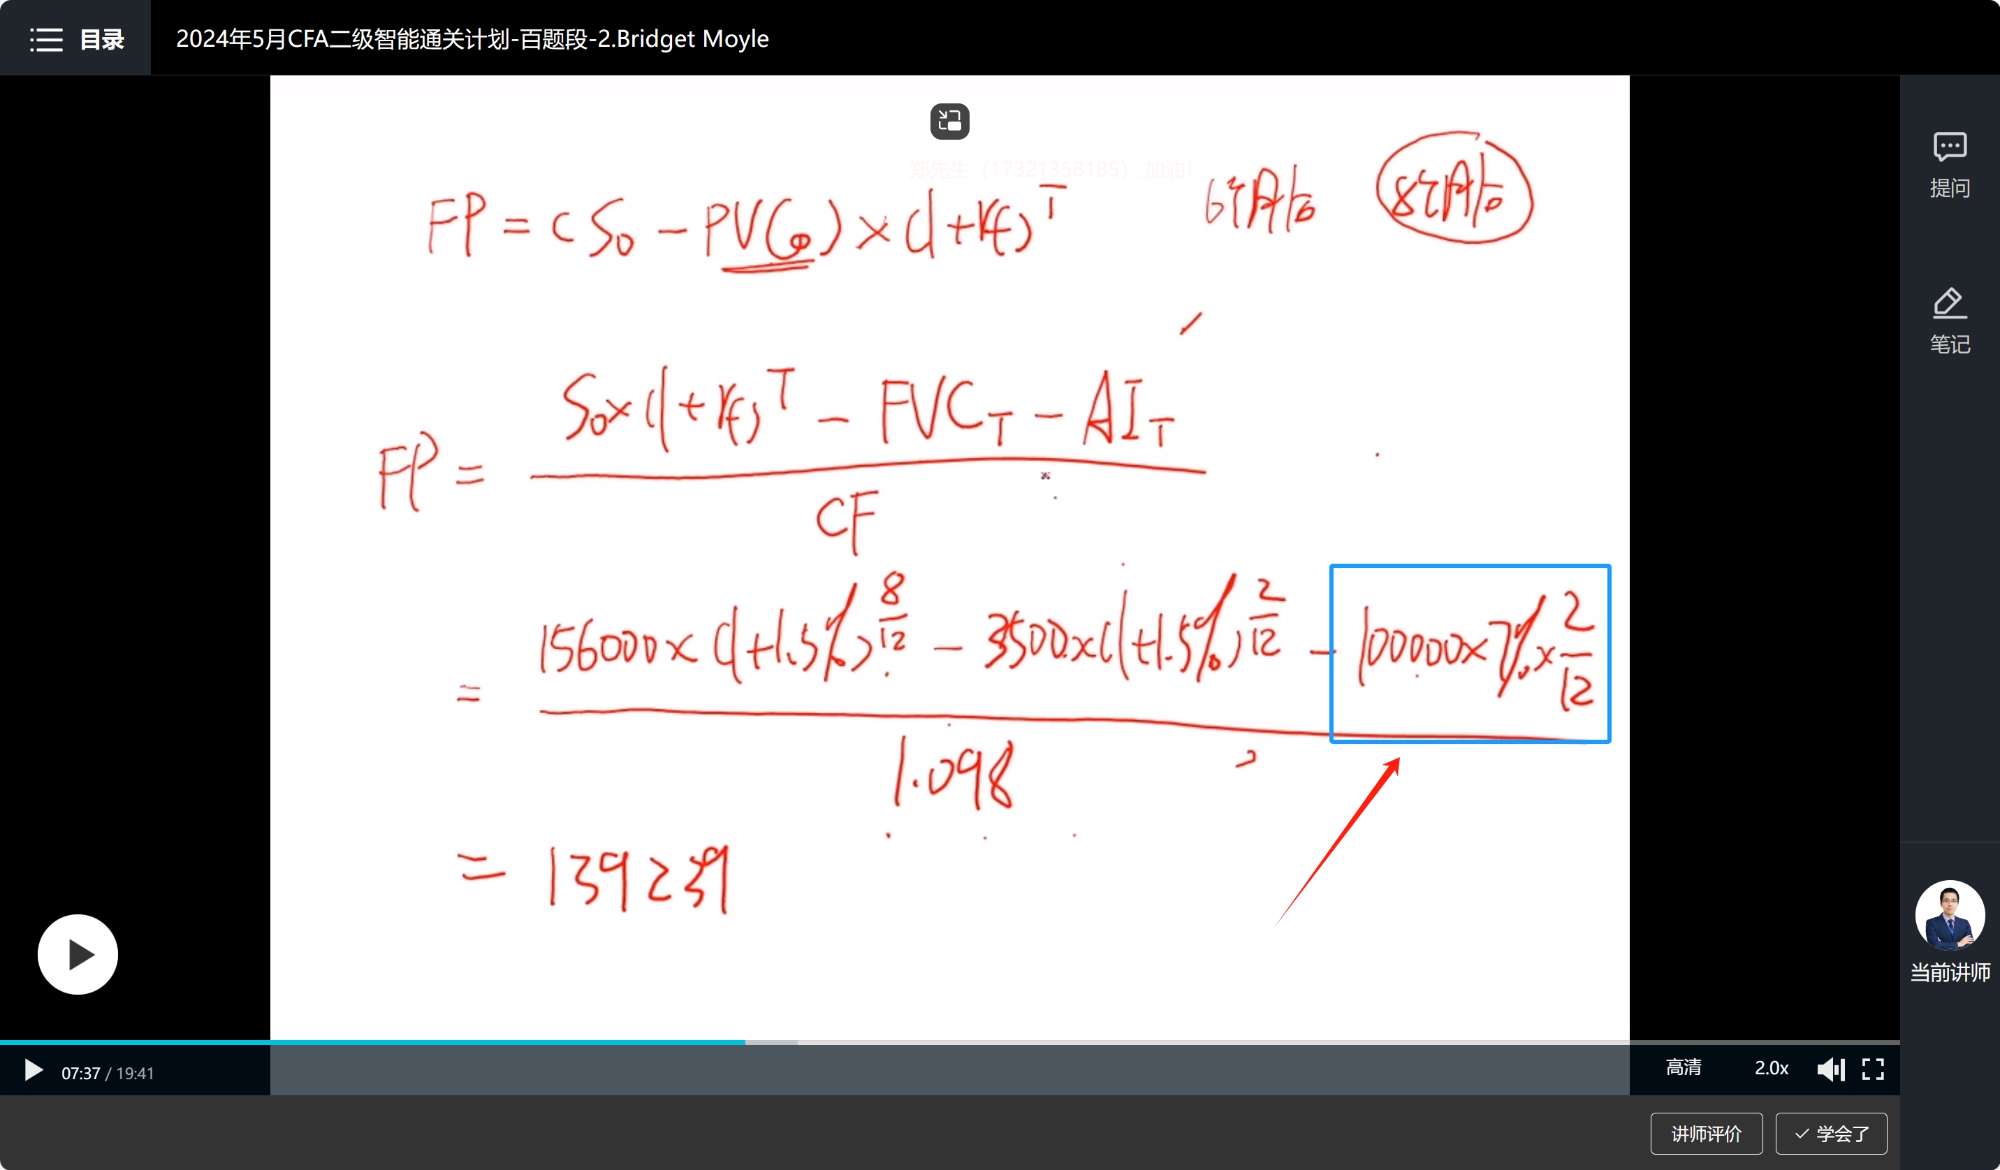 目录
2024年5月CFA二级智能通关计划-百题段-2.Bridget Moyle
郑先生（17321358185），加油！
FP = (S₀ - PVC₀) × (1+rf)ᵀ 6个月后 8个月后
FP = (S₀×(1+rf)ᵀ - FVC_T - AI_T) / CF
= (156000×(1+1.5%)^(8/12) - 3500×(1+1.5%)^(2/12) - 100000×7%×2/12) / 1.098
= 139239
提问
笔记
当前讲师
07:37 / 19:41
高清 2.0x
讲师评价 学会了